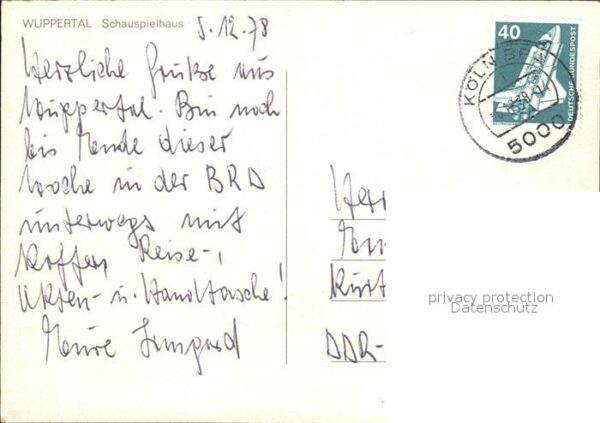 WUPPERTAL Schauspielhaus
5.12.78
Herzliche Grüße aus
Wuppertal. Bin noch
bis Ende dieser
Woche in der BRD
unterwegs mit
Koffer, Reise-,
Akten- u. Handtasche!
Eure Irmgard
40
DEUTSCHE BUNDESPOST
KÖLN
5000
Herr
Kurt
DDR-
privacy protection
Datenschutz